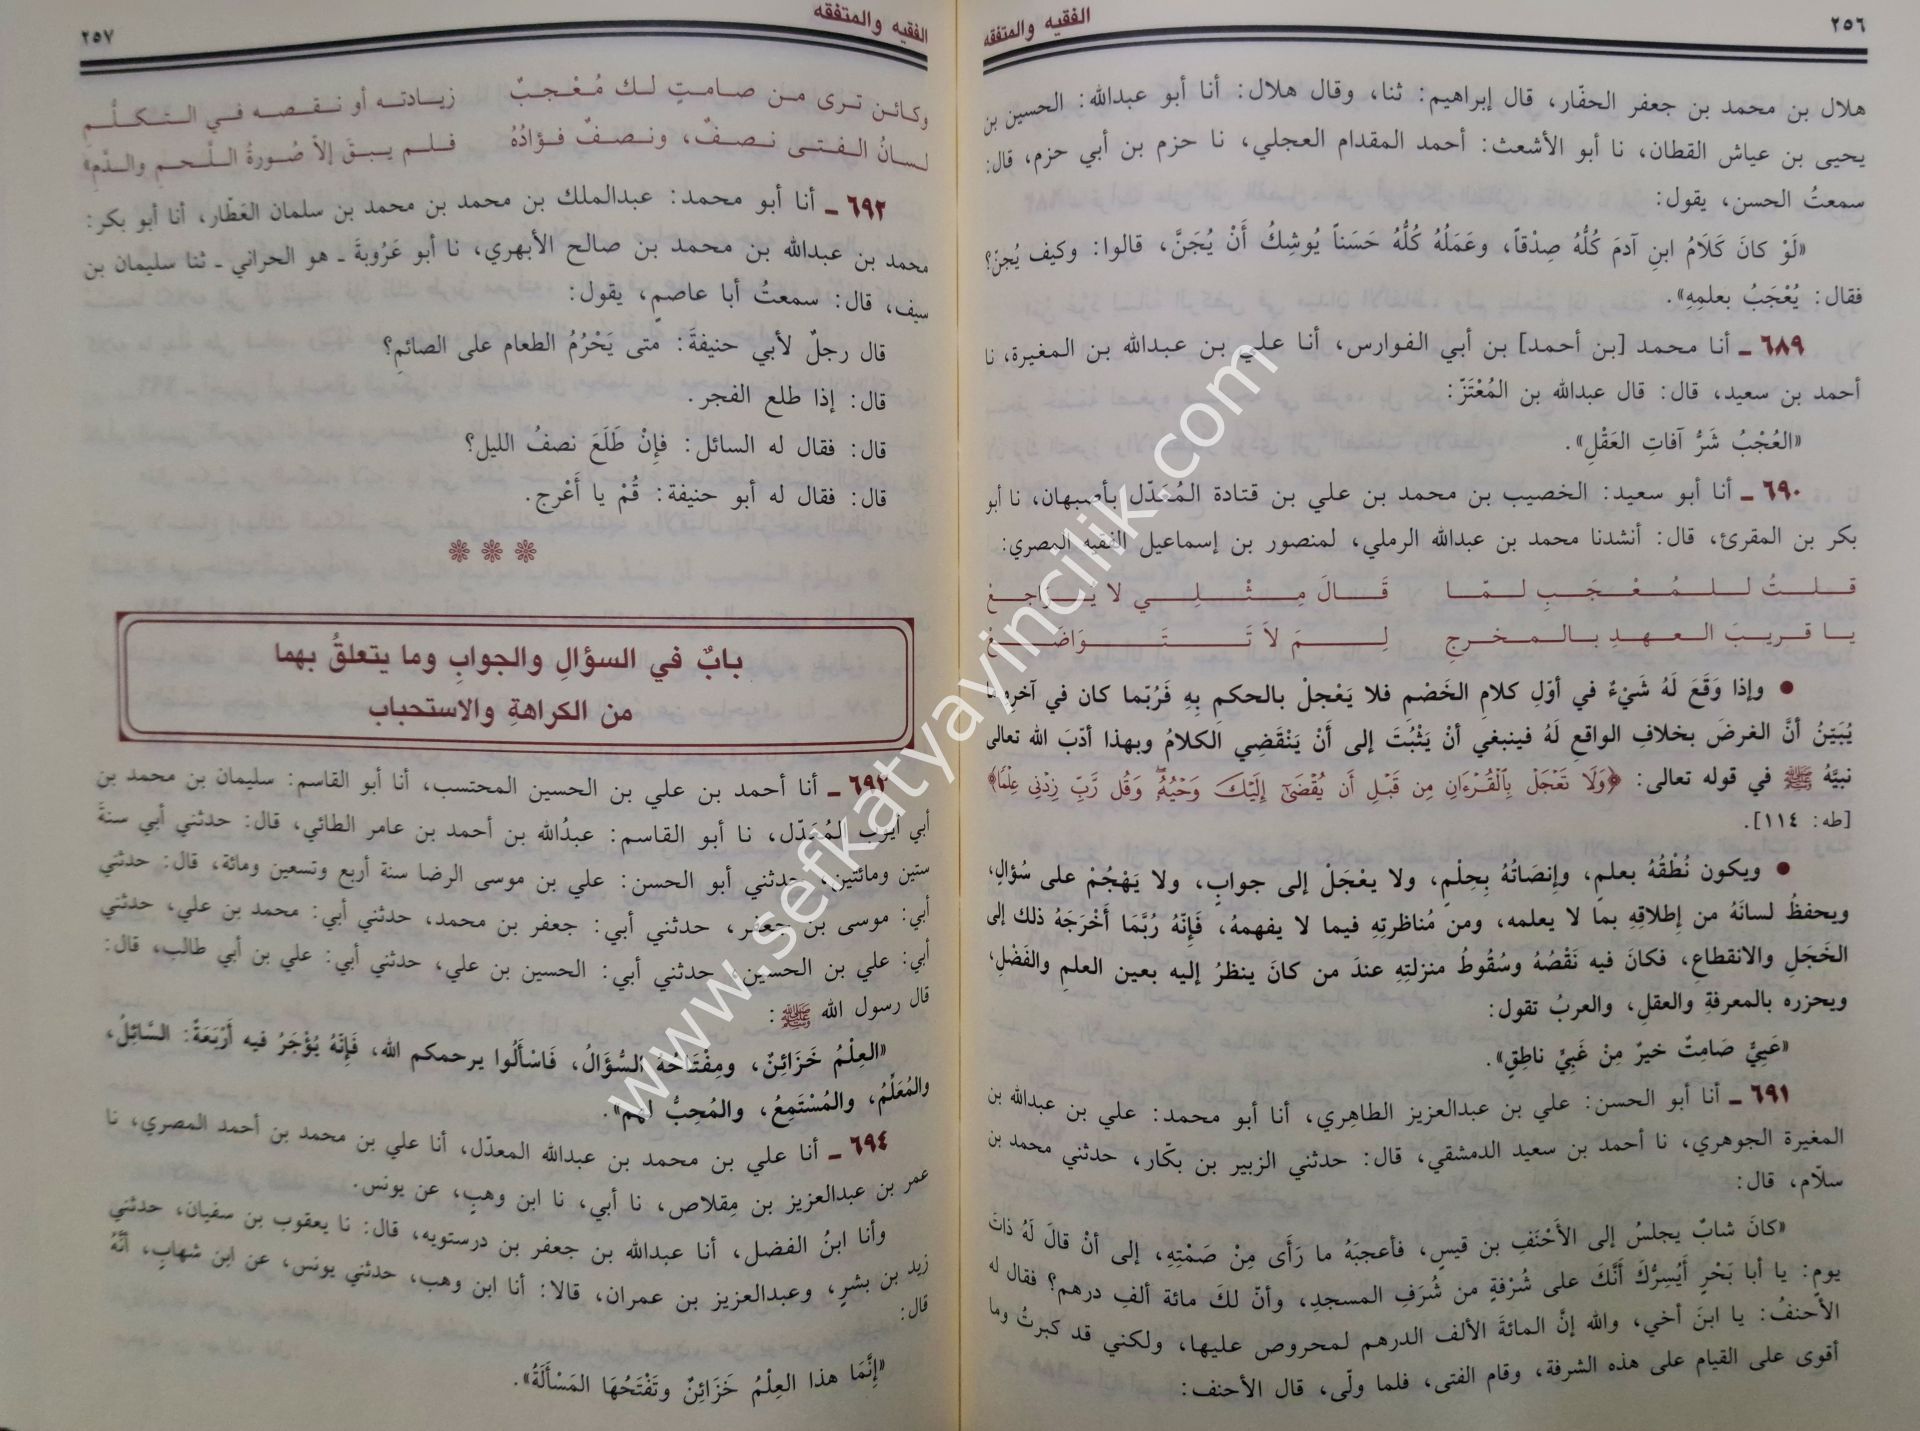 ٢٥٦
الفقيه والمتفقه
هلال بن محمد بن جعفر الحفّار، قال إبراهيم: ثنا، وقال هلال: أنا أبو عبدالله: الحسين بن
يحيى بن عياش القطان، نا أبو الأشعث: أحمد المقدام العجلي، نا حزم بن أبي حزم، قال:
سمعتُ الحسن، يقول:
«لَوْ كانَ كَلَامُ ابنِ آدمَ كُلُّهُ صِدْقاً، وعَمَلُهُ كُلُّهُ حَسَناً يُوشِكُ أَنْ يُجَنَّ، قالوا: وكيف يُجنّ؟
فقال: يُعْجَبُ بعلمِهِ».
٦٨٩ ـ أنا محمد [بن أحمد] بن أبي الفوارس، أنا علي بن عبدالله بن المغيرة، نا
أحمد بن سعيد، قال: قال عبدالله بن المُعْتَزّ:
«العُجْبُ شَرُّ آفاتِ العَقْلِ».
٦٩٠ ـ أنا أبو سعيد: الخصيب بن محمد بن علي بن قتادة المُعَدّل بأصبهان، نا أبو
بكر بن المقرئ، قال: أنشدنا محمد بن عبدالله الرملي، لمنصور بن إسماعيل الفقيه المصري:
قلتُ للمُعْجَبِ لمّا قَالَ مِثْلِي لا يراجعْ
يا قريبَ العهدِ بالمخرجِ لِمَ لاَ تَتَوَاضَعْ
● وإذا وَقَعَ لَهُ شَيْءٌ في أوّلِ كلامِ الخَصْمِ فلا يَعْجلْ بالحكمِ بِهِ فَرُبّما كان في آخرِه ما
يُبَيّنُ أنَّ الغرضَ بخلافِ الواقعِ لَهُ فينبغي أنْ يَثْبُتَ إلى أنْ يَنْقَضِي الكلامُ وبهذا أدّبَ الله تعالى
نبيَّهُ ﷺ في قوله تعالى: ﴿وَلَا تَعْجَلْ بِالْقُرْءَانِ مِن قَبْلِ أَن يُقْضَىٰٓ إِلَيْكَ وَحْيُهُۥ وَقُل رَّبِّ زِدْنِي عِلْمًا﴾
[طه: ١١٤].
● ويكون نُطْقُهُ بعلمٍ، وإنصَاتُهُ بِحِلْمٍ، ولا يعْجَلْ إلى جوابٍ، ولا يَهْجُمْ على سُؤالٍ،
ويحفظُ لسانَهُ من إطلاقِهِ بما لا يعلمه، ومن مُناظرتِهِ فيما لا يفهمهُ، فَإنّهُ رُبَّمَا أَخْرَجَهُ ذلك إلى
الخَجَلِ والانقطاعِ، فكانَ فيه نَقْصُهُ وسُقُوطُ منزلتِهِ عندَ من كانَ ينظرُ إليه بعين العلمِ والفَضْلِ،
ويحزره بالمعرفةِ والعقلِ، والعربُ تقول:
«عَيِيٌّ صَامِتٌ خيرٌ مِنْ غَبِيٍّ ناطِقٍ».
٦٩١ ـ أنا أبو الحسن: علي بن عبدالعزيز الطاهِري، أنا أبو محمد: علي بن عبدالله بن
المغيرة الجوهري، نا أحمد بن سعيد الدمشقي، قال: حدثني الزبير بن بكّار، حدثني محمد بن
سلّام، قال:
«كانَ شابٌ يجلسُ إلى الأَحْنَفِ بن قيسٍ، فأعجبَهُ ما رَأَى مِنْ صَمْتِهِ، إلى أنْ قالَ لَهُ ذاتَ
يومٍ: يا أبا بَحْرٍ أَيُسِرُّكَ أَنَّكَ على شُرْفةٍ من شُرَفِ المسجدِ، وأنّ لكَ مائة ألفِ درهم؟ فقال له
الأحنفُ: يا ابنَ أخي، والله إنَّ المائةَ الألف الدرهم لمحروص عليها، ولكني قد كبرتُ وما
أقوى على القيام على هذه الشرفة، وقام الفتى، فلما ولّى، قال الأحنف:
الفقيه والمتفقه
٢٥٧
وكائن ترى من صامتٍ لك مُعْجبٌ زيادته أو نقصه في التكلّمِ
لسانُ الفتى نصفٌ، ونصفٌ فؤادُهُ فلم يبقَ إلاّ صُورةُ اللّحمِ والدّمِ»
٦٩٢ ـ أنا أبو محمد: عبدالملك بن محمد بن محمد بن سلمان العَطّار، أنا أبو بكر:
محمد بن عبدالله بن محمد بن صالح الأبهري، نا أبو عَرُوبةَ ـ هو الحراني ـ ثنا سليمان بن
سيف، قال: سمعتُ أبا عاصمٍ، يقول:
قال رجلٌ لأبي حنيفةَ: متى يَحْرُمُ الطعام على الصائمِ؟
قال: إذا طلع الفجر.
قال: فقال له السائل: فإنْ طَلَعَ نصفُ الليل؟
قال: فقال له أبو حنيفة: قُمْ يا أَعْرج.
❊ ❊ ❊
بابٌ في السؤالِ والجوابِ وما يتعلقُ بهما
من الكراهةِ والاستحباب
٦٩٣ ـ أنا أحمد بن علي بن الحسين المحتسب، أنا أبو القاسم: سليمان بن محمد بن
أبي أيوب المُعَدّل، نا أبو القاسم: عبدُالله بن أحمد بن عامر الطائي، قال: حدثني أبي سنةَ
ستين ومائتين، حدثني أبو الحسن: علي بن موسى الرضا سنة أربع وتسعين ومائة، قال: حدثني
أبي: موسى بن جعفر، حدثني أبي: جعفر بن محمد، حدثني أبي: محمد بن علي، حدثني
أبي: علي بن الحسين، حدثني أبي: الحسين بن علي، حدثني أبي: علي بن أبي طالب، قال:
قال رسول الله ﷺ:
«العِلْمُ خَزَائِنٌ، ومِفْتَاحُهُ السُّؤَالُ، فَاسْأَلُوا يرحمكم الله، فَإنّهُ يُؤْجَرُ فيه أَرْبَعَةٌ: السَّائِلُ،
والمُعَلِّمُ، والمُسْتَمِعُ، والمُحِبُّ لهم».
٦٩٤ ـ أنا علي بن محمد بن عبدالله المعدّل، أنا علي بن محمد بن أحمد المصري، نا
عمر بن عبدالعزيز بن مِقلاص، نا أبي، نا ابن وهبٍ، عن يونس.
وأنا ابنُ الفضل، أنا عبدالله بن جعفر بن درستويه، قال: نا يعقوب بن سفيان، حدثني
زيد بن بشرٍ، وعبدالعزيز بن عمران، قالا: أنا ابن وهب، حدثني يونس، عن ابن شهابٍ، أنّهُ
قال:
«إنَّمَا هذا العِلْمُ خَزَائِنٌ وتَفْتَحُهَا المَسْأَلَةُ».
www.sefkatyayincilik.com